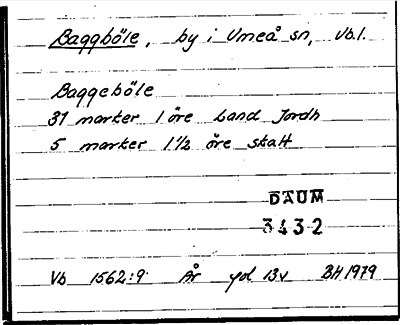 Baggböle, by i Umeå sn, Vb.l.
Baggeböle
31 marker 1 öre Land Jordh
5 marker 1 1/2 öre skatt
DAUM
3432
Vb 1562:9 År yd 13v BH 1979